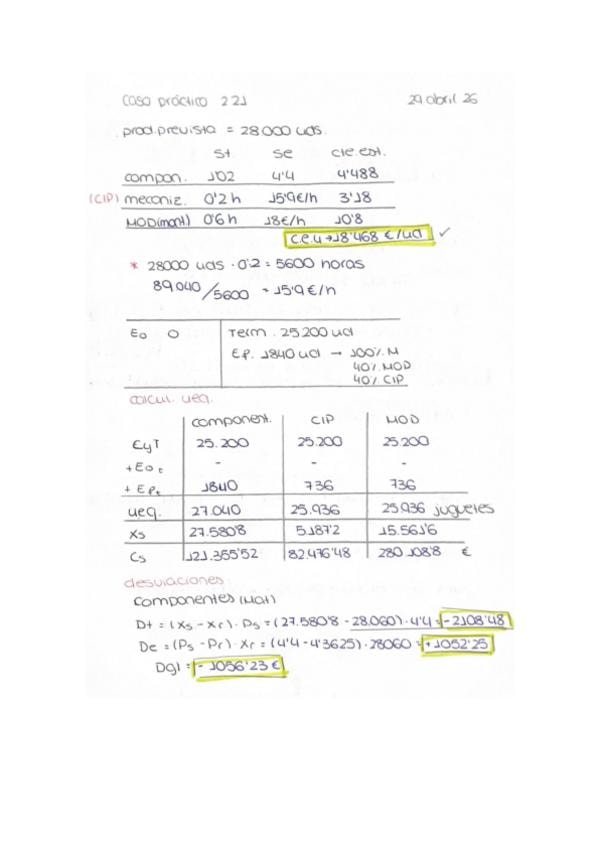 Caso práctico 221 29 abril 26
prod. prevista = 28000 uds.
st se cte.est.
compon. 1'02 4'4 4'488
(CIP) mecaniz. 0'2 h 15'9€/h 3'18
MOD(mont) 0'6 h 18€/h 10'8
c.e.u → 18'468 €/ud ✓
* 28000 uds · 0'2 = 5600 horas
89040/5600 = 15'9 €/h
Eo 0 Term. 25.200 ud
E.P. 1840 ud → 100% M
40% MOD
40% CIP
calcul. ueq.
component. CIP MOD
EyT 25.200 25.200 25.200
+Eot - - -
+EPt 1840 736 736
ueq. 27.040 25.936 25.936 juguetes
Xs 27.580'8 5.187'2 15.561'6
Cs 121.355'52 82.476'48 280.108'8 €
desviaciones:
componentes (Mat)
Dt = (Xs - Xr) · Ps = (27.580'8 - 28.060) · 4'4 = -2108'48
De = (Ps - Pr) · Xr = (4'4 - 4'3625) · 28060 = +1052'25
Dgl = -1056'23 €